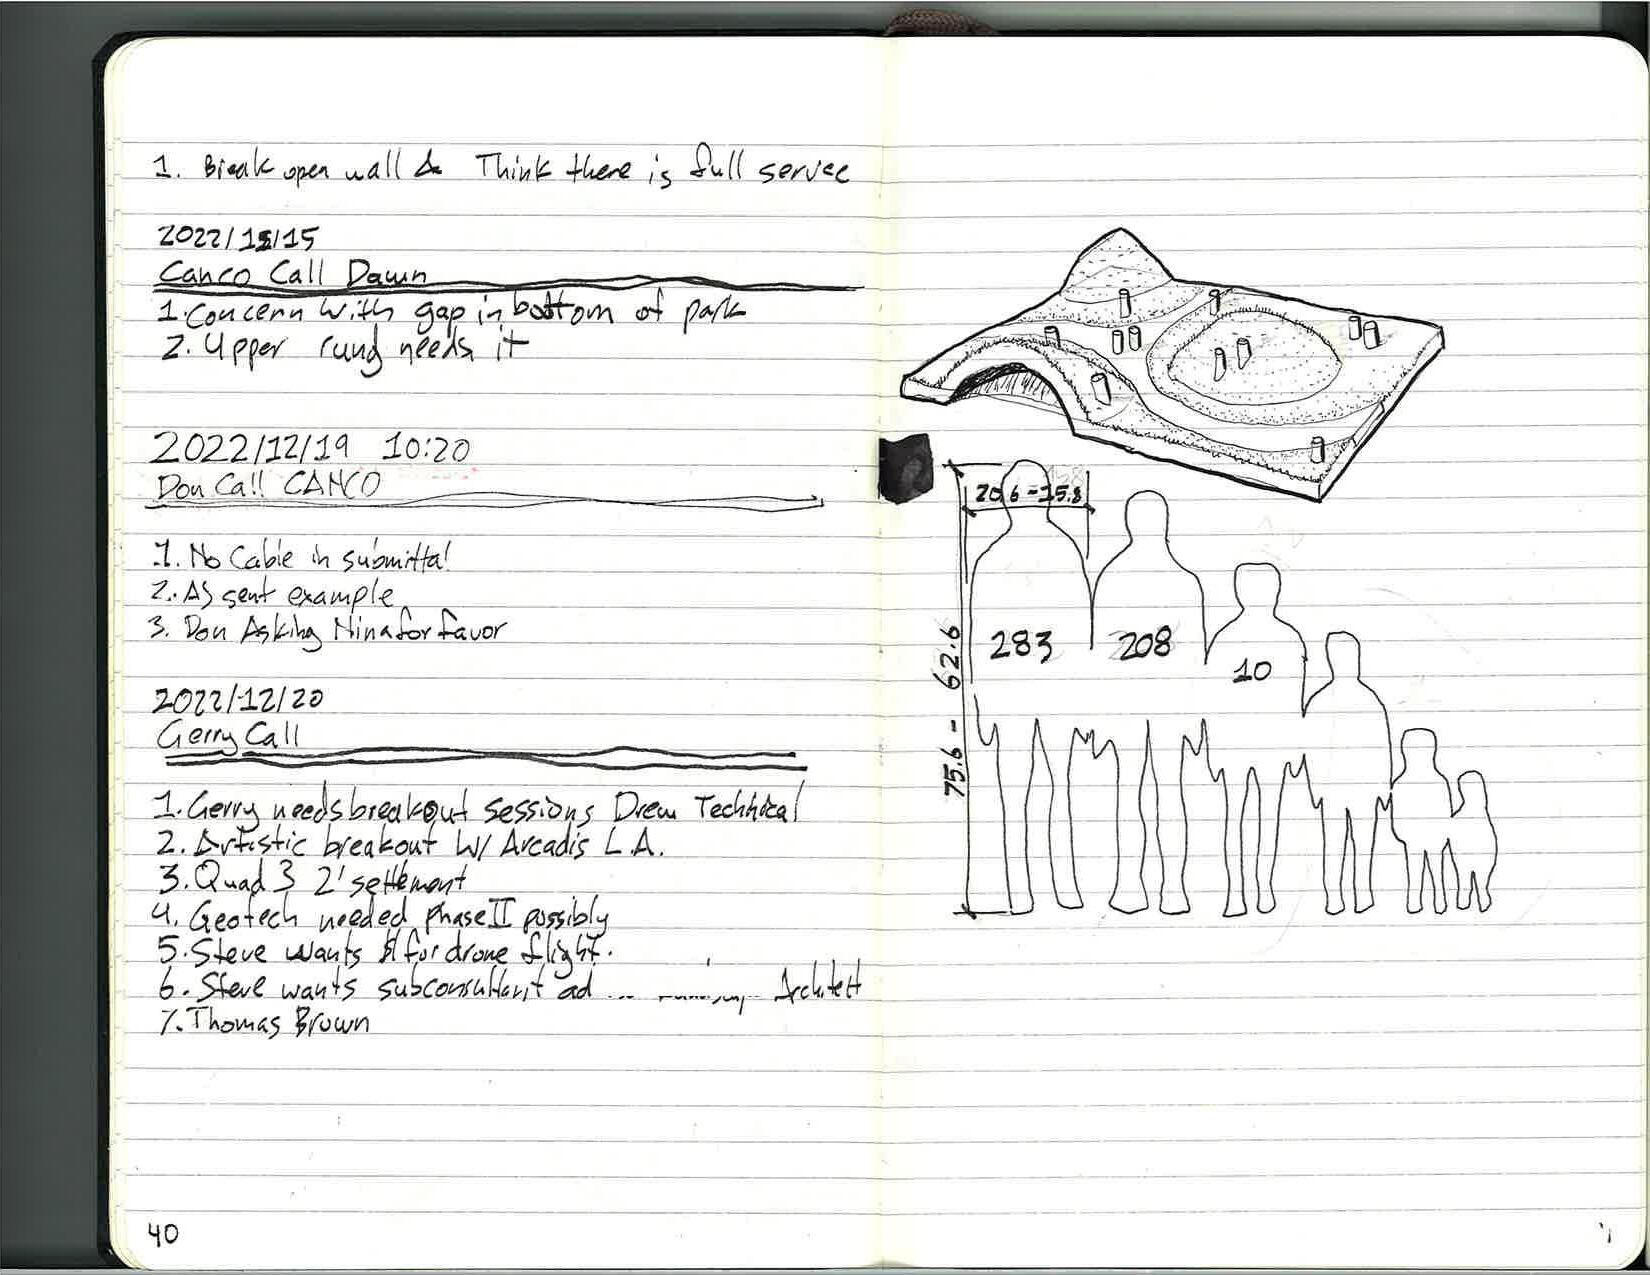 1. Break open wall & Think there is full service
2022/12/15
Canco Call Dawn
1. Concern with gap in bottom of park
2. Upper rung needs it
2022/12/19 10:20
Don Call CANCO
1. No Cable in submittal
2. AJ sent example
3. Don Asking Nina for favor
2022/12/20
Gerry Call
1. Gerry needs breakout sessions Drew Technical
2. Artistic breakout W/ Arcadis L.A.
3. Quad 3 2' settlement
4. Geotech needed phase II possibly
5. Steve wants $ for drone flight.
6. Steve wants subconsultant ad Architect
7. Thomas Brown
40
20.6 - 15.8
75.6 - 62.6
283
208
10